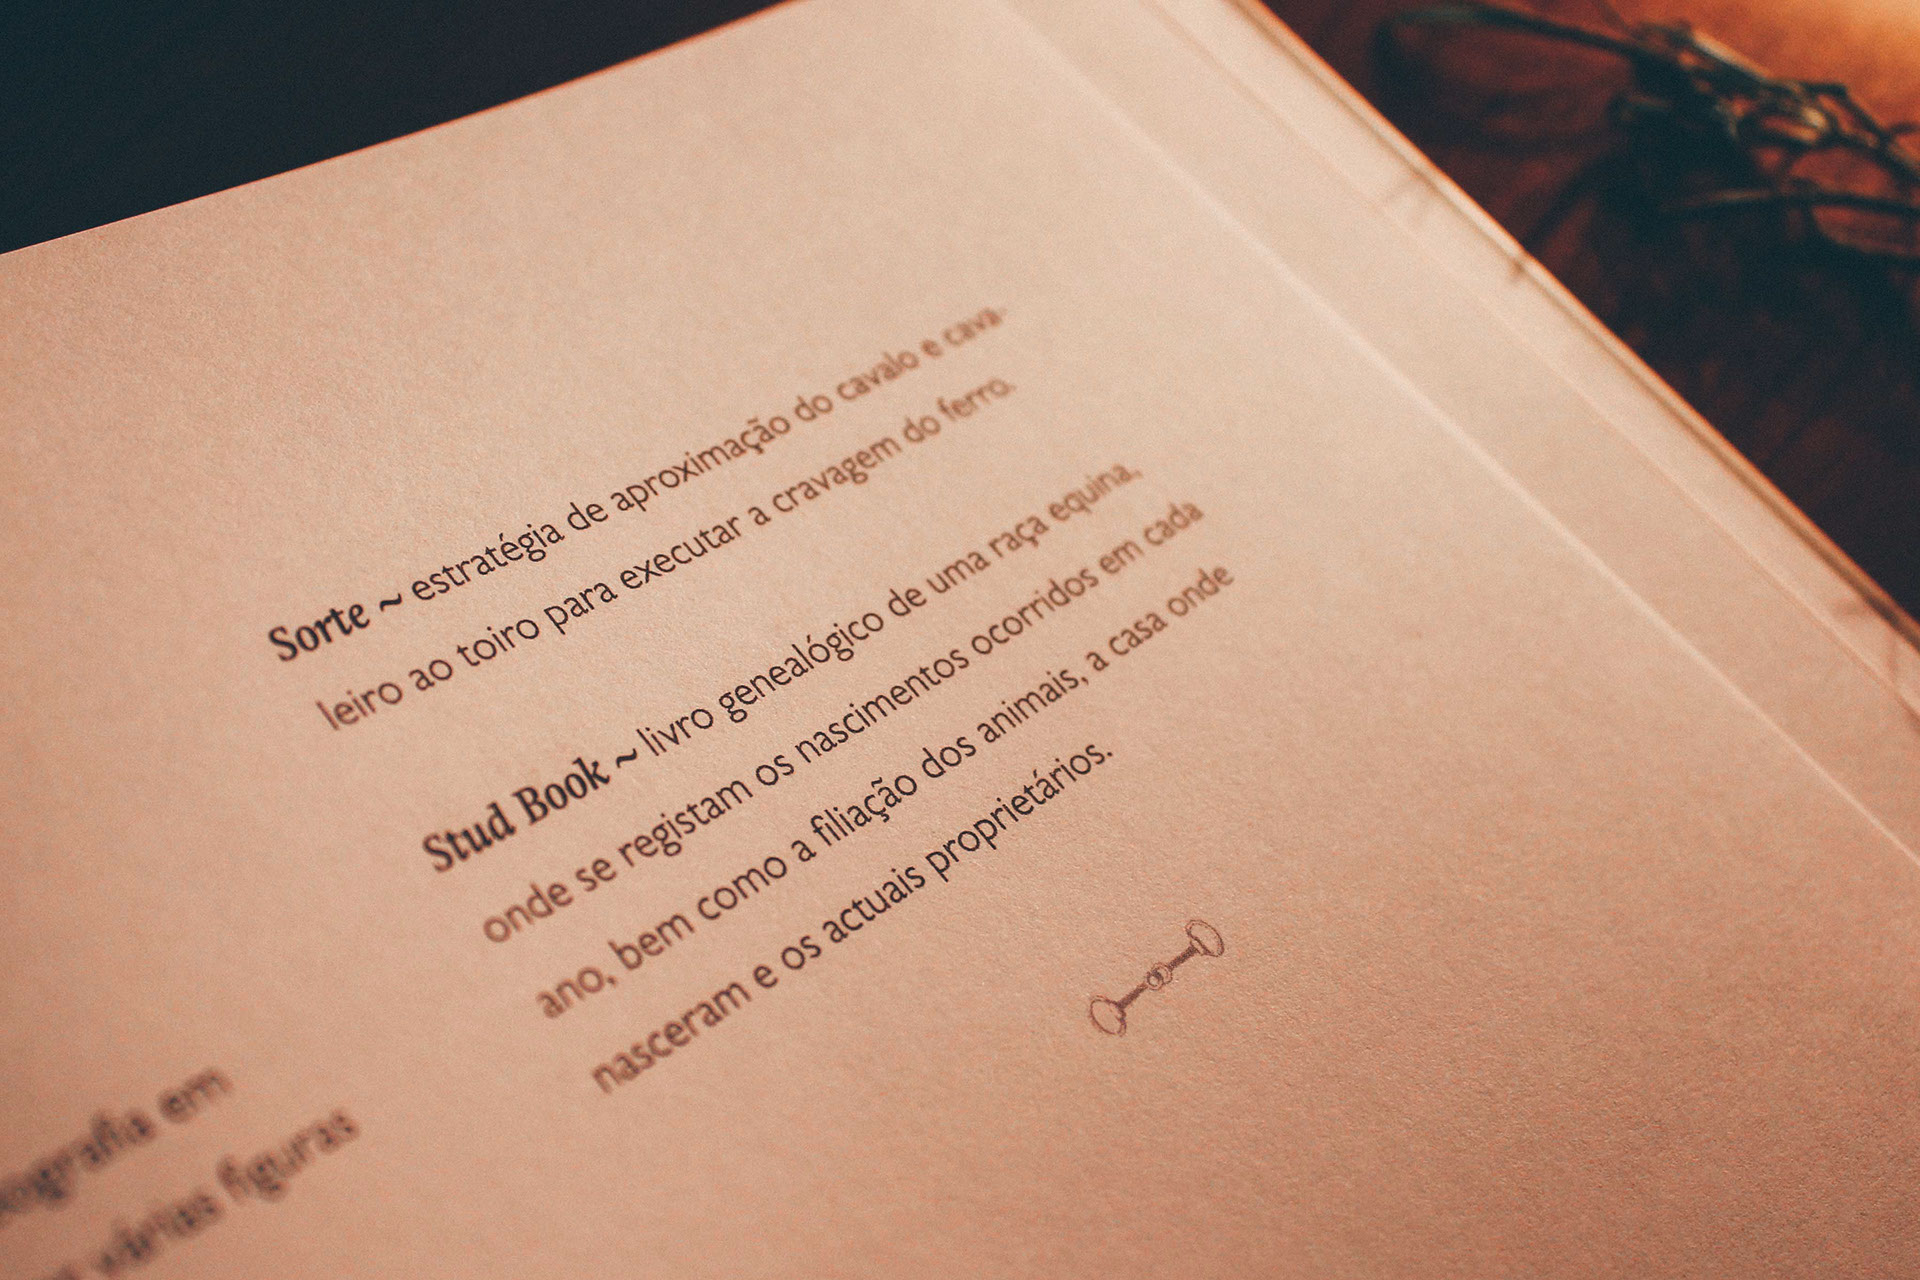 Sorte ~ estratégia de aproximação do cavalo e cava-
leiro ao toiro para executar a cravagem do ferro.
Stud Book ~ livro genealógico de uma raça equina,
onde se registam os nascimentos ocorridos em cada
ano, bem como a filiação dos animais, a casa onde
nasceram e os actuais proprietários.
em
várias figuras